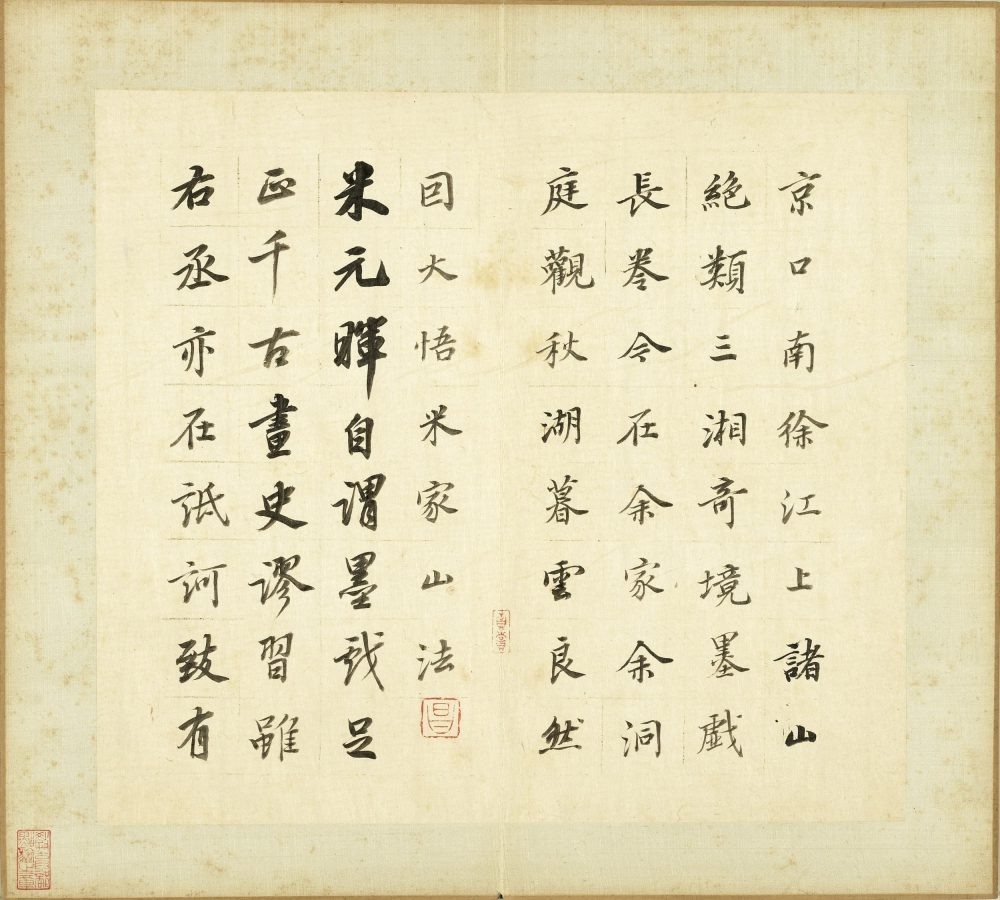 京口南徐江上諸山
絕類三湘奇境墨戲
長卷今在余家余洞
庭觀秋湖暮雲良然
回大悟米家山法
米元暉自謂墨戲足
正千古畫史謬習雖
右丞亦在詆訶致有
昌